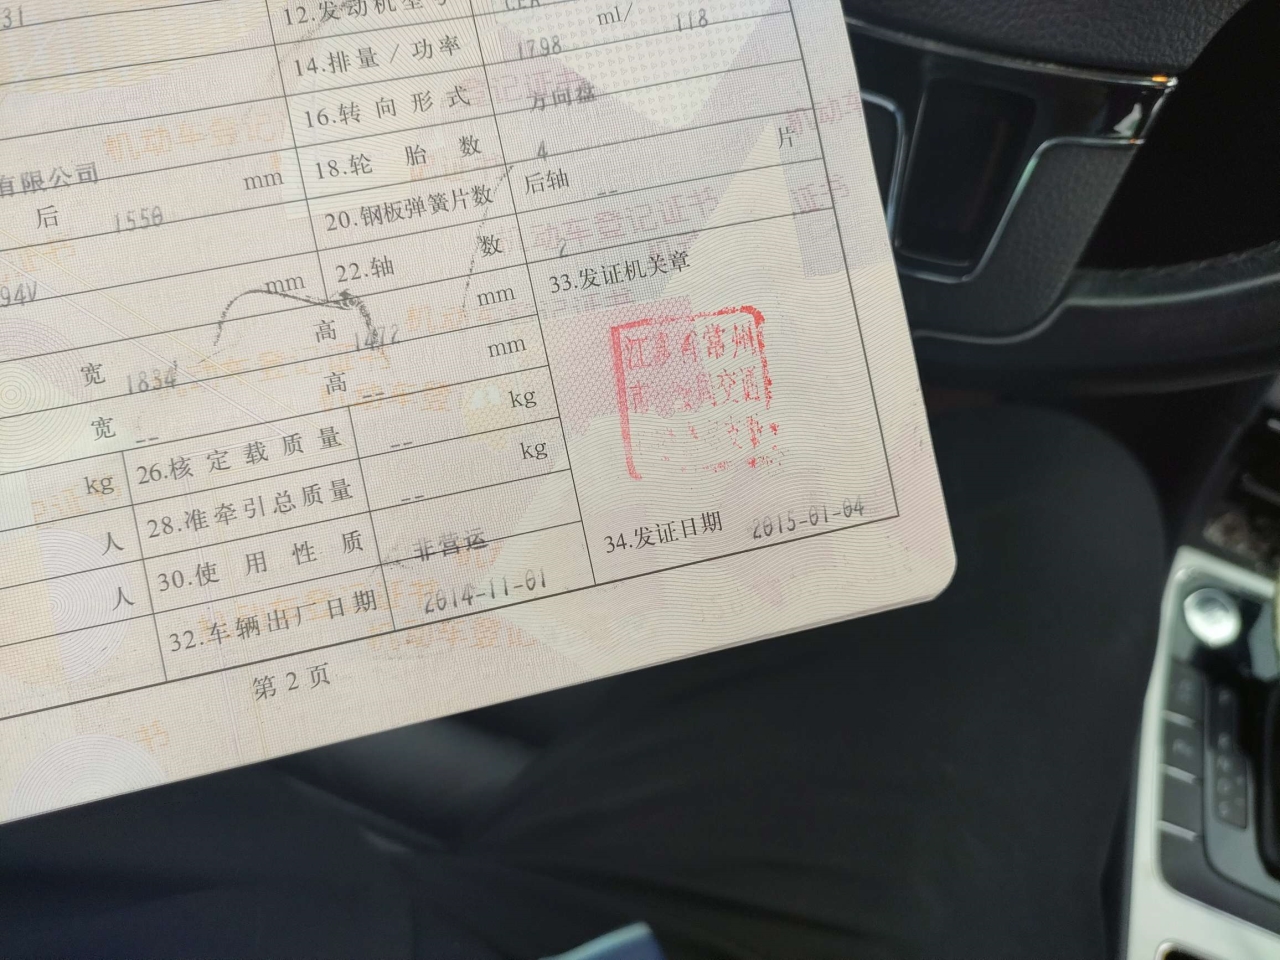 31
12.发动机型号
CEA
14.排量/功率 1798 ml/ 118
16.转向形式 方向盘
有限公司
18.轮胎数 4
后 1550 mm
20.钢板弹簧片数 后轴 -- 片
94V
22.轴数 2
mm
宽 1834 高 1472 mm
宽 -- 高 -- mm
kg 26.核定载质量 -- kg
人 28.准牵引总质量 -- kg
人 30.使用性质 非营运
32.车辆出厂日期 2014-11-01
33.发证机关章
江苏省常州
市公安局交通
34.发证日期 2015-01-04
第2页
机动车登记证书